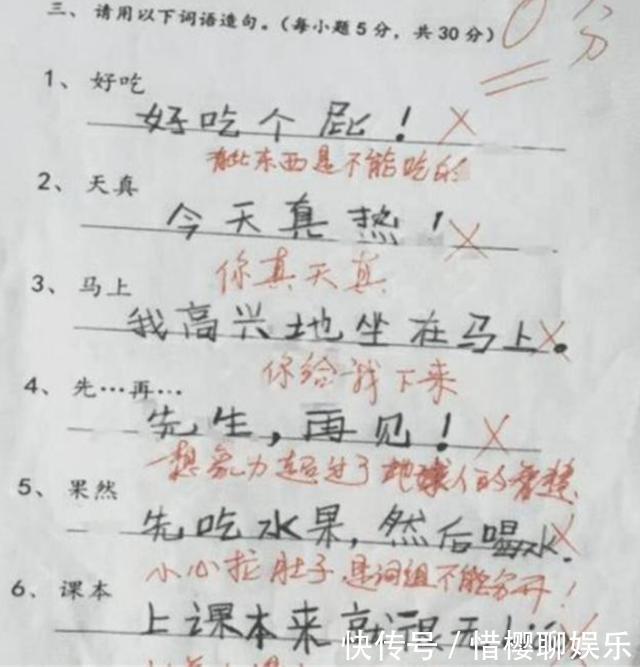 三、请用以下词语造句。(每小题5分，共30分)
0分
1、好吃
好吃个屁！
有些东西是不能吃的
2、天真
今天真热！
你真天真
3、马上
我高兴地坐在马上。
你给我下来
4、先…再…
先生，再见！
想象力超过了地球人的智慧
5、果然
先吃水果，然后喝水.
小心拉肚子，是词组不能分开！
6、课本
上课本来就
快传号／惜樱聊娱乐